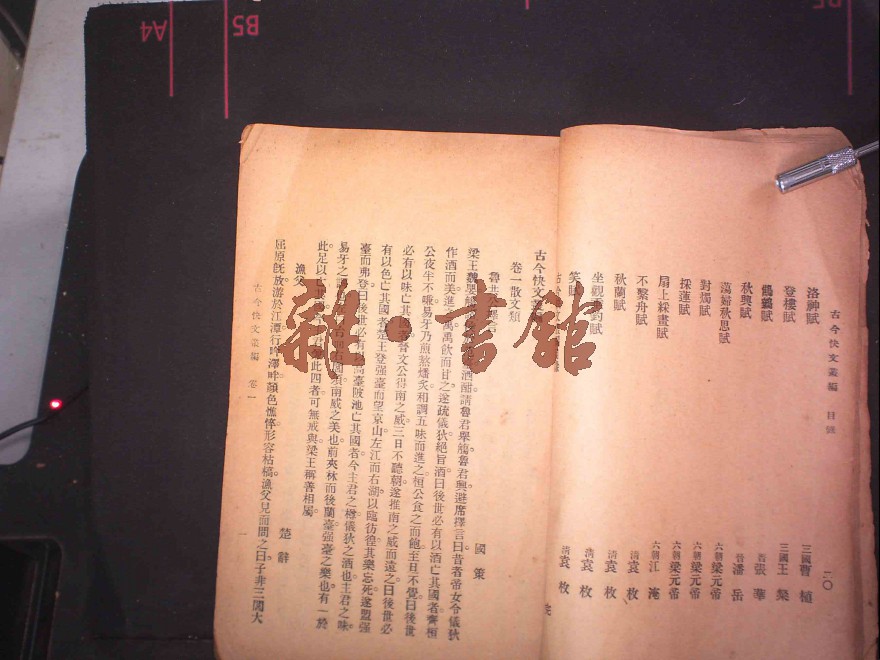 A4
B5
B5
古今快文叢編 目錄
二〇
洛神賦 三國曹植
登樓賦 三國王粲
鷦鷯賦 晉張華
秋興賦 晉潘岳
蕩婦秋思賦 六朝梁元帝
對燭賦 六朝梁元帝
採蓮賦 六朝梁元帝
扇上綵畫賦 六朝江淹
不繫舟賦 清袁枚
秋蘭賦 清袁枚
坐觀釣賦 清袁枚
笑賦 清袁枚
古今快文
卷一散文類
魯共 國策
梁王魏嬰觴 酒酣請魯君舉觴魯君興避席擇言曰昔者帝女令儀狄
作酒而美進 禹禹飲而甘之遂疏儀狄絕旨酒曰後世必有以酒亡其國者齊桓
公夜半不嗛易牙乃煎熬燔炙和調五味而進之桓公食之而飽至旦不覺曰後世
必有以味亡其國 晉文公得南之威三日不聽朝遂推南之威而遠之曰後世必
有以色亡其國者楚王登强臺而望京山左江而右湖以臨彷徨其樂忘死遂盟强
臺而弗登曰後世必有以高臺陂池亡其國者今主君之樽儀狄之酒也主君之味
易牙之 南威之美也前夾林而後蘭臺强臺之樂也有一於
此足以亡 此四者可無戒與梁王稱善相屬
漁父 楚辭
屈原旣放游於江潭行吟澤畔顏色憔悴形容枯槁漁父見而問之曰子非三閭大
古今快文叢編 卷一
一
雜·書館